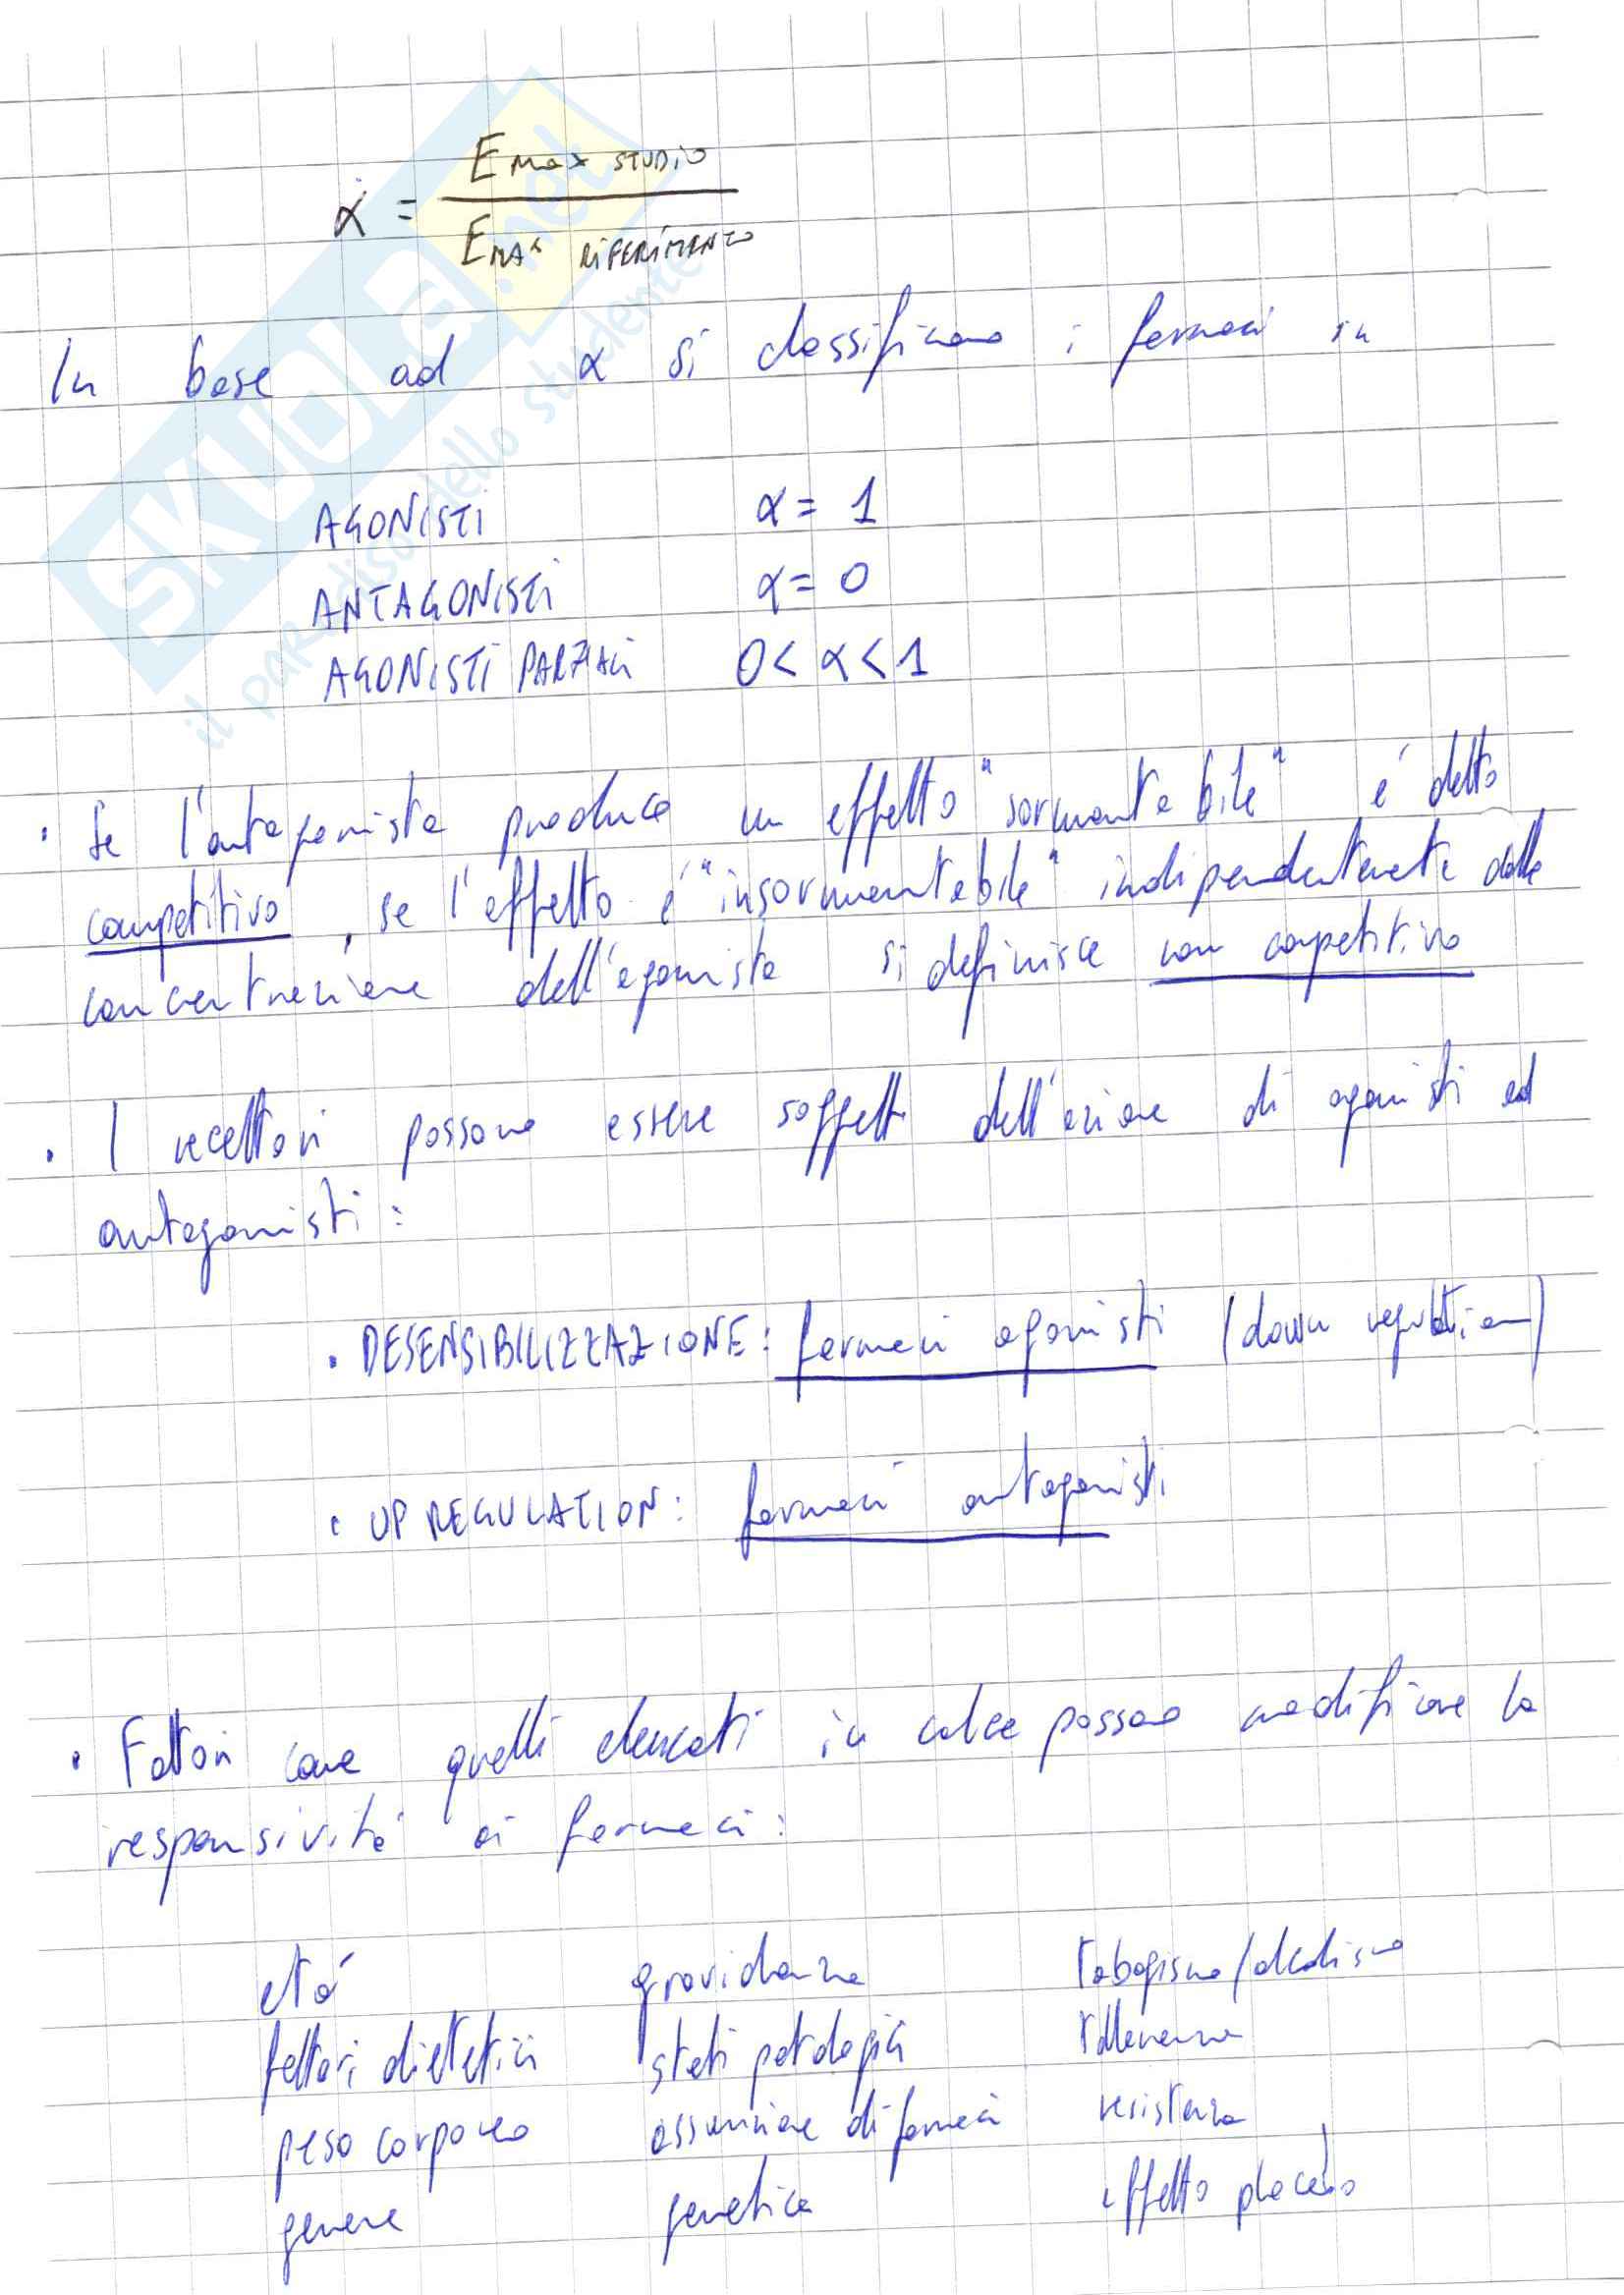 α = E max STUDIO / E MAX RIFERIMENTO
In base ad α si classificano i farmaci in
AGONISTI α = 1
ANTAGONISTI α = 0
AGONISTI PARZIALI 0 < α < 1
· Se l'antagonista produce un effetto "sormontabile" é detto
competitivo, se l'effetto é "insormontabile" indipendentemente dalla
concentrazione dell'agonista si definisce non competitivo
· I recettori possono essere soggetti dell'azione di agonisti ed
antagonisti:
· DESENSIBILIZZAZIONE: farmaci agonisti (down regulation)
· UP REGULATION: farmaci antagonisti
· Fattori come quelli elencati in calce possono modificare la
responsività ai farmaci:
etá gravidanza tabagismo/alcolismo
fattori dietetici stati patologici tolleranza
peso corporeo assunzione di farmaci resistenza
genere genetica effetto placebo
SKUOLA.net
il paradiso dello studente